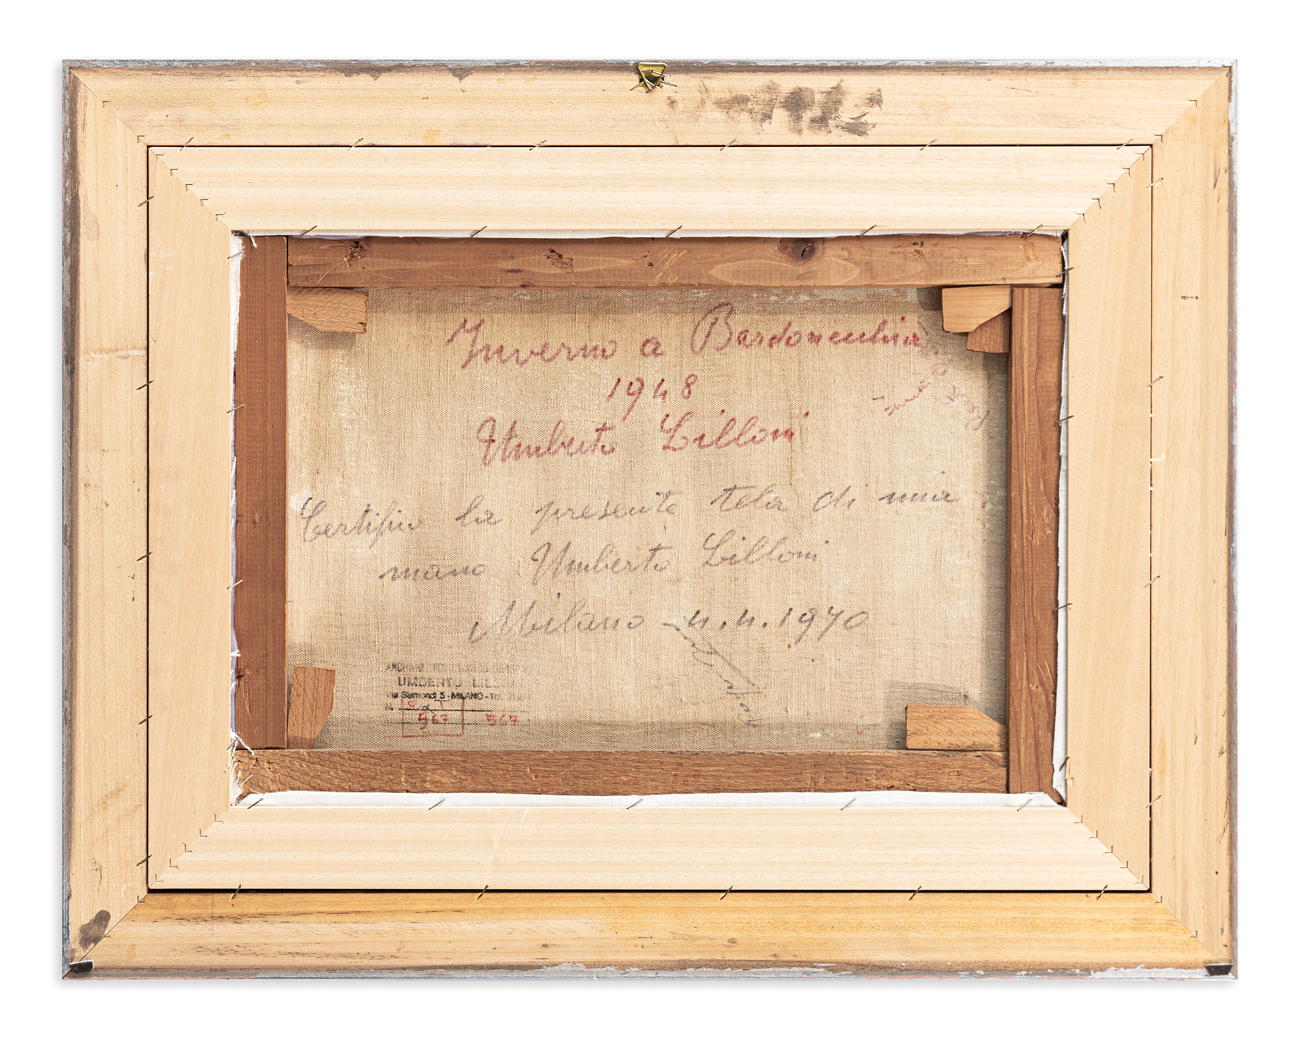 Inverno a Bardonecchia
1948
Umberto Lilloni
Certifico la presente tela di mia
mano Umberto Lilloni
Milano - 4.4.1970
ARCHIVIO
UMBERTO LILLONI
Via Sismondi 5 - MILANO - Tel.
N.
567 567